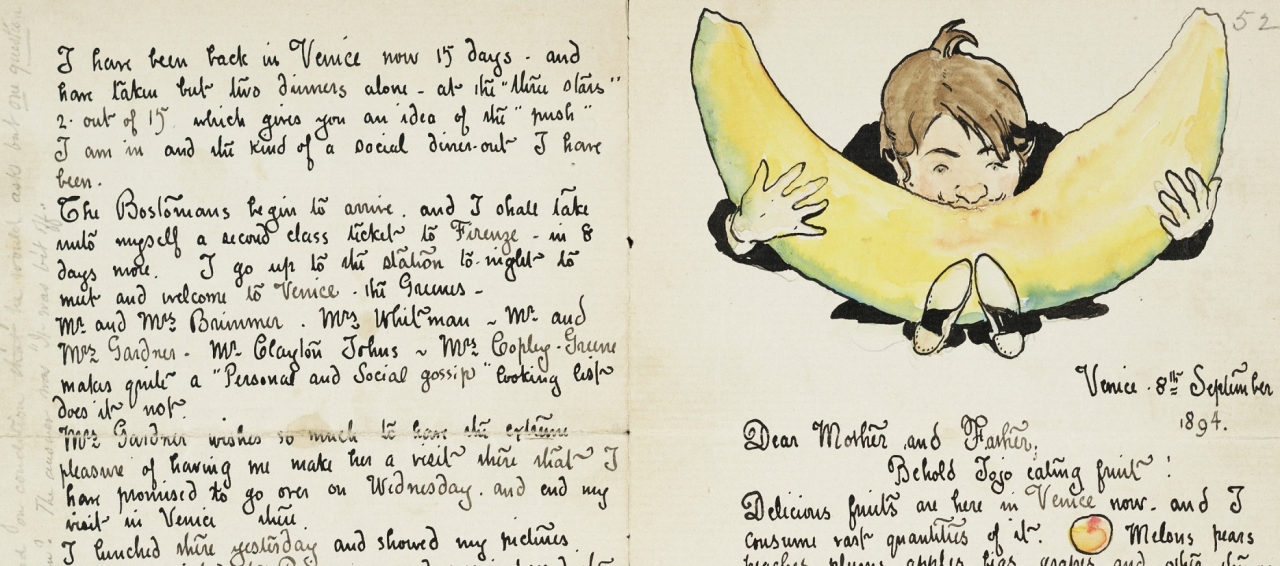 I have been back in Venice now 15 days - and
have taken but two dinners alone - at the "three stars"
2. out of 15 which gives you an idea of the "push"
I am in and the kind of a social diner-out I have
been.
The Bostonians begin to arrive. and I shall take
unto myself a second class ticket to Firenze - in 8
days more. I go up to the station to-night to
meet and welcome to Venice - the Greenes -
Mr. and Mrs Brimmer. Mrs Whitman ~ Mr. and
Mrs Gardner - Mr. Clayton Johns ~ Mrs Copley-Greene
makes quite a "Personal and Social gossip" looking list
does it not.
Mrs Gardner wishes so much to have the extreme
pleasure of having me make her a visit there that I
have promised to go over on Wednesday. and end my
visit in Venice there.
I lunched there yesterday and showed my pictures.
52
Venice. 8th September
1894.
Dear Mother and Father,
Behold Jojo eating fruit!
Delicious fruits are here in Venice now. and I
consume vast quantities of it. Melons pears
peaches plums apples figs grapes and other
condition that he would ask but one question
The answer was "I was bit off.